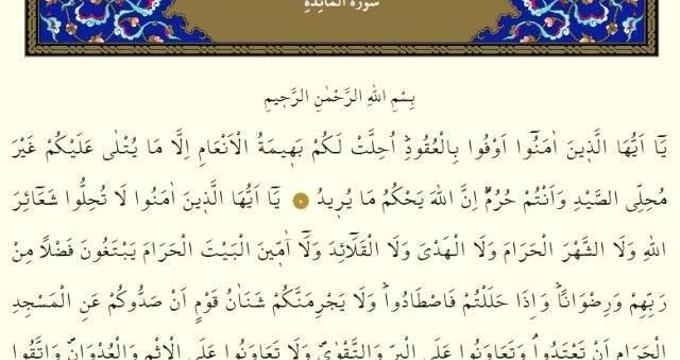 سُورَةُ الْمَائِدَةِ
بِسْمِ اللهِ الرَّحْمٰنِ الرَّح۪يمِ
يَٓا اَيُّهَا الَّذ۪ينَ اٰمَنُٓوا اَوْفُوا بِالْعُقُودِۜ اُحِلَّتْ لَكُمْ بَه۪يمَةُ الْاَنْعَامِ اِلَّا مَا يُتْلٰى عَلَيْكُمْ غَيْرَ
مُحِلِّي الصَّيْدِ وَاَنْتُمْ حُرُمٌۜ اِنَّ اللهَ يَحْكُمُ مَا يُر۪يدُ ١ يَٓا اَيُّهَا الَّذ۪ينَ اٰمَنُوا لَا تُحِلُّوا شَعَٓائِرَ
اللهِ وَلَا الشَّهْرَ الْحَرَامَ وَلَا الْهَدْيَ وَلَا الْقَلَٓائِدَ وَلَٓا اٰمّ۪ينَ الْبَيْتَ الْحَرَامَ يَبْتَغُونَ فَضْلًا مِنْ
رَبِّهِمْ وَرِضْوَانًاۜ وَاِذَا حَلَلْتُمْ فَاصْطَادُواۜ وَلَا يَجْرِمَنَّكُمْ شَنَاٰنُ قَوْمٍ اَنْ صَدُّوكُمْ عَنِ الْمَسْجِدِ
الْحَرَامِ اَنْ تَعْتَدُواۢ وَتَعَاوَنُوا عَلَى الْبِرِّ وَالتَّقْوٰىۖ وَلَا تَعَاوَنُوا عَلَى الْاِثْمِ وَالْعُدْوَانِۖ وَاتَّقُوا